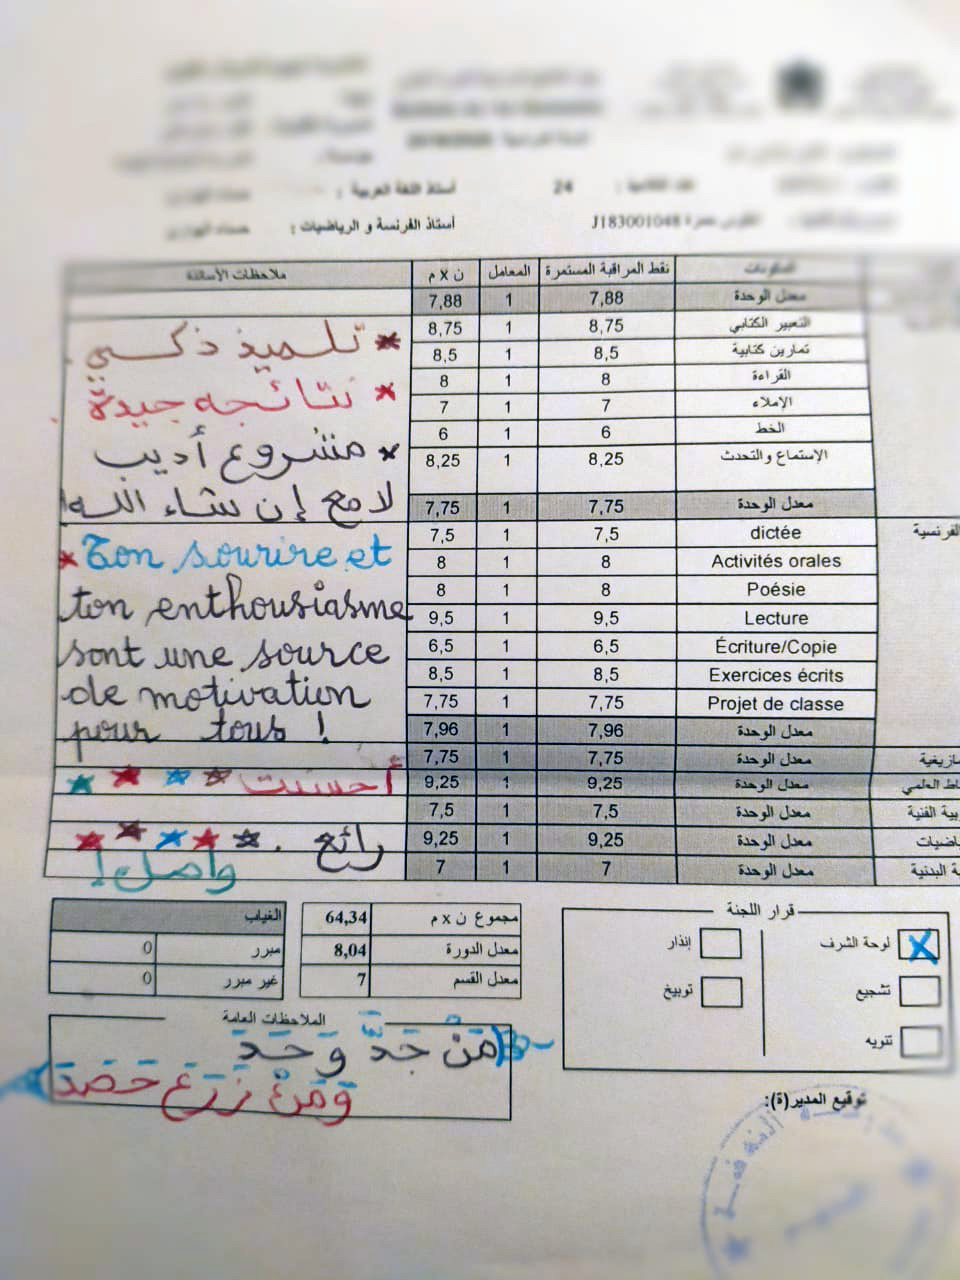 أستاذ اللغة العربية :
24
أستاذ الفرنسة و الرياضيات :
J183001048
المكونات نقط المراقبة المستمرة المعامل ن x م ملاحظات الأساتذة
معدل الوحدة 7,88 1 7,88
التعبير الكتابي 8,75 1 8,75
تمارين كتابية 8,5 1 8,5
القراءة 8 1 8
الإملاء 7 1 7
الخط 6 1 6
الإستماع والتحدث 8,25 1 8,25
معدل الوحدة 7,75 1 7,75
تلميذ ذكي.
نتائجه جيدة.
مشروع أديب
لامع إن شاء الله!
الفرنسية
dictée 7,5 1 7,5
Activités orales 8 1 8
Poésie 8 1 8
Lecture 9,5 1 9,5
Écriture/Copie 6,5 1 6,5
Exercices écrits 8,5 1 8,5
Projet de classe 7,75 1 7,75
معدل الوحدة 7,96 1 7,96
Ton sourire et
ton enthousiasme
sont une source
de motivation
pour tous !
مازيغية معدل الوحدة 7,75 1 7,75
اط العلمي معدل الوحدة 9,25 1 9,25 أحسنت
بية الفنية معدل الوحدة 7,5 1 7,5
ياضيات معدل الوحدة 9,25 1 9,25 رائع.
ة البدنية معدل الوحدة 7 1 7 واصل!
قرار اللجنة
لوحة الشرف X
إنذار
تشجيع
توبيخ
تنويه
مجموع ن x م 64,34
معدل الدورة 8,04
معدل القسم 7
الغياب
مبرر 0
غير مبرر 0
الملاحظات العامة
مَنْ جَدَّ وَجَدَ
وَمَنْ زَرَعَ حَصَدَ
توقيع المدير(ة):